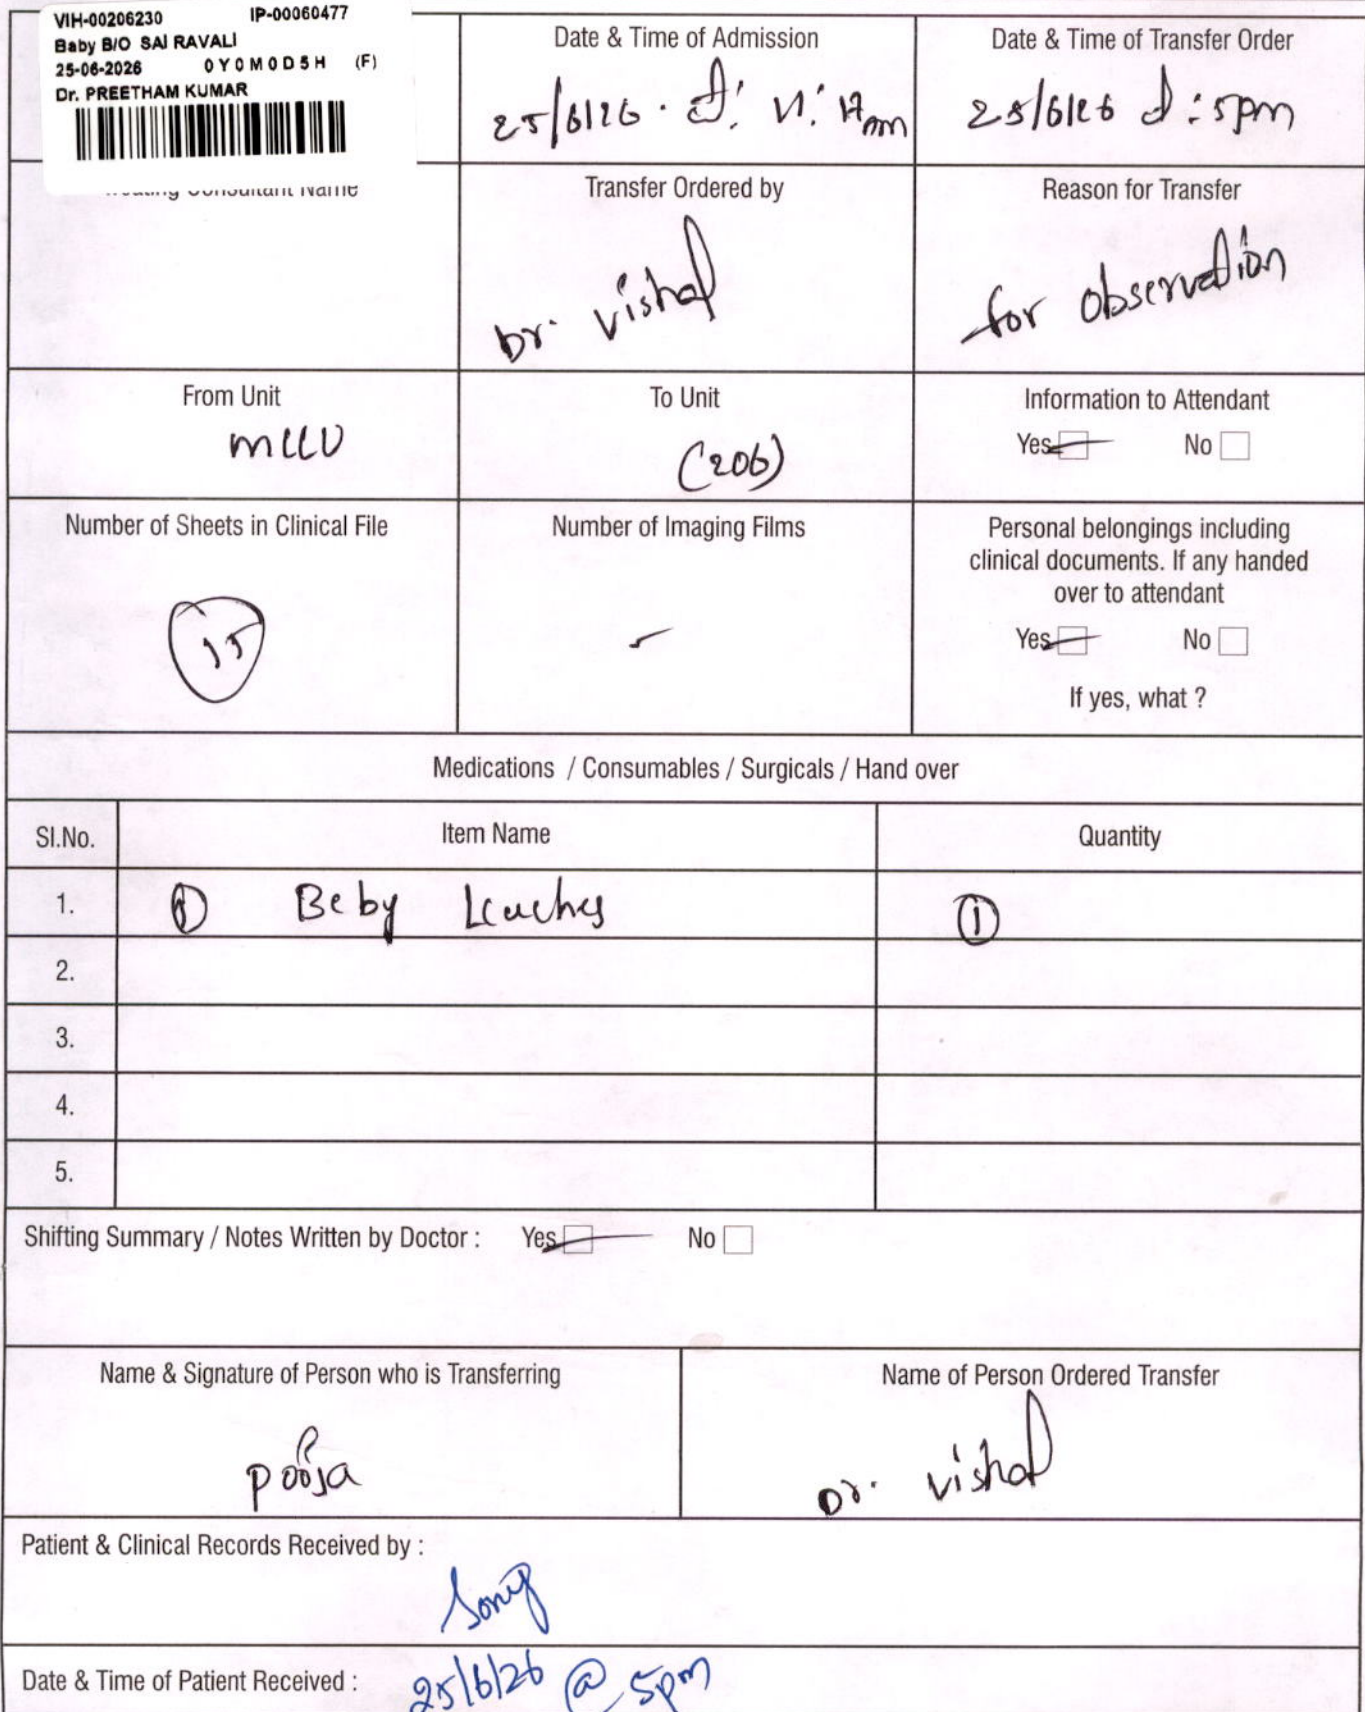 VIH-00206230 IP-00060477
Baby B/O SAI RAVALI
25-06-2026 0Y0M0D5H (F)
Dr. PREETHAM KUMAR
Date & Time of Admission
25/6/26
Date & Time of Transfer Order
25/6/26 5pm
Consultant Name
Transfer Ordered by
Dr. vishal
Reason for Transfer
for observation
From Unit
To Unit
(206)
Information to Attendant
Yes No
Number of Sheets in Clinical File
15
Number of Imaging Films
Personal belongings including
clinical documents. If any handed
over to attendant
Yes No
If yes, what ?
Medications / Consumables / Surgicals / Hand over
Sl.No. Item Name Quantity
1. 1 Beby 1
2.
3.
4.
5.
Shifting Summary / Notes Written by Doctor : Yes No
Name & Signature of Person who is Transferring
pooja
Name of Person Ordered Transfer
Dr. vishal
Patient & Clinical Records Received by :
Date & Time of Patient Received : 25/6/26 @ 5pm